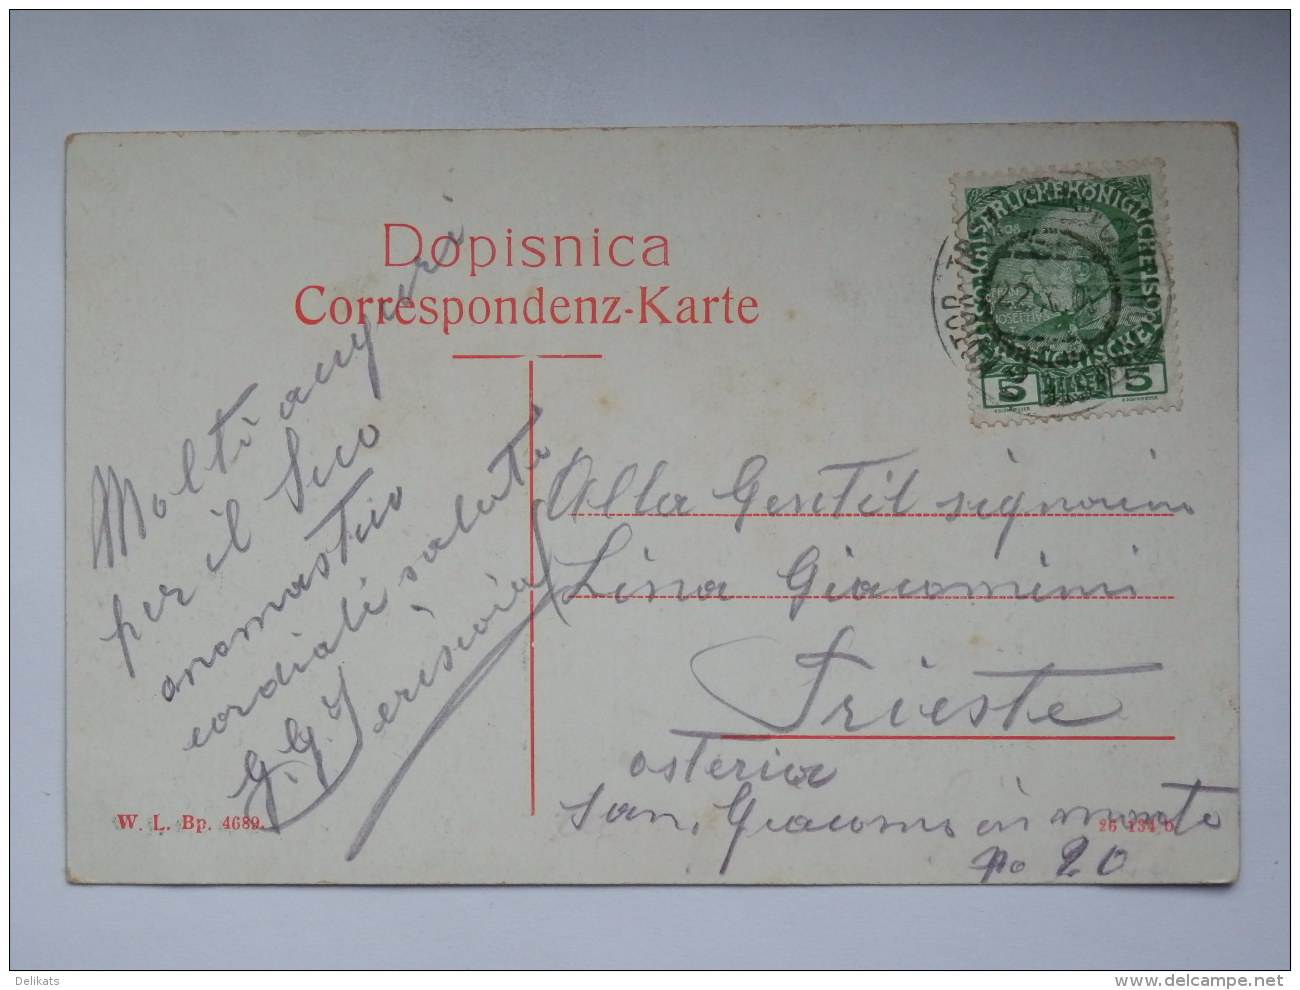 Dopisnica
Correspondenz-Karte
Molti auguri
per il Suo
onomastico
cordiali saluti
G. G.
KAISERLICHE KÖNIGLICHE
5 HELLER 5
22
Alla Gentil signorina
Lina Giacomini
Trieste
osteria
San. Giacomo in monte
No 20
W. L. Bp. 4689.
26 134 b
Delikats
www.delcampe.net